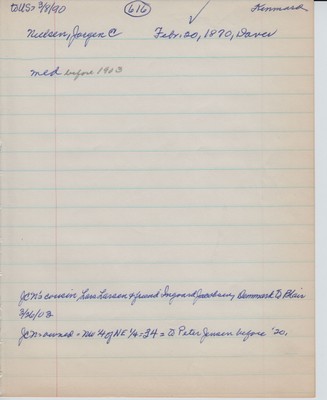 to US = 3/8/90 616 Denmark
Nielsen, Jorgen C Febr. 20, 1870, Daver
med before 1903
JCN's cousin, Lars Larsen & friend Ingvard Jacobsen, Denmark to Blair
3/26/03
JCN = owned = NW 1/4 of NE 1/4 = 34 = to Peter Jensen before '20,